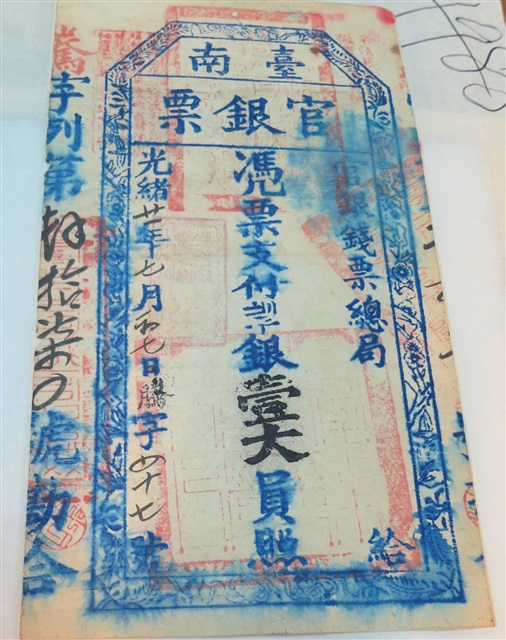 臺南
官銀票
官銀錢票總局 給
憑票支付 銀壹大員照
光緒廿一年七月初七日 字四十七號
字列第 拾柒 號勘合